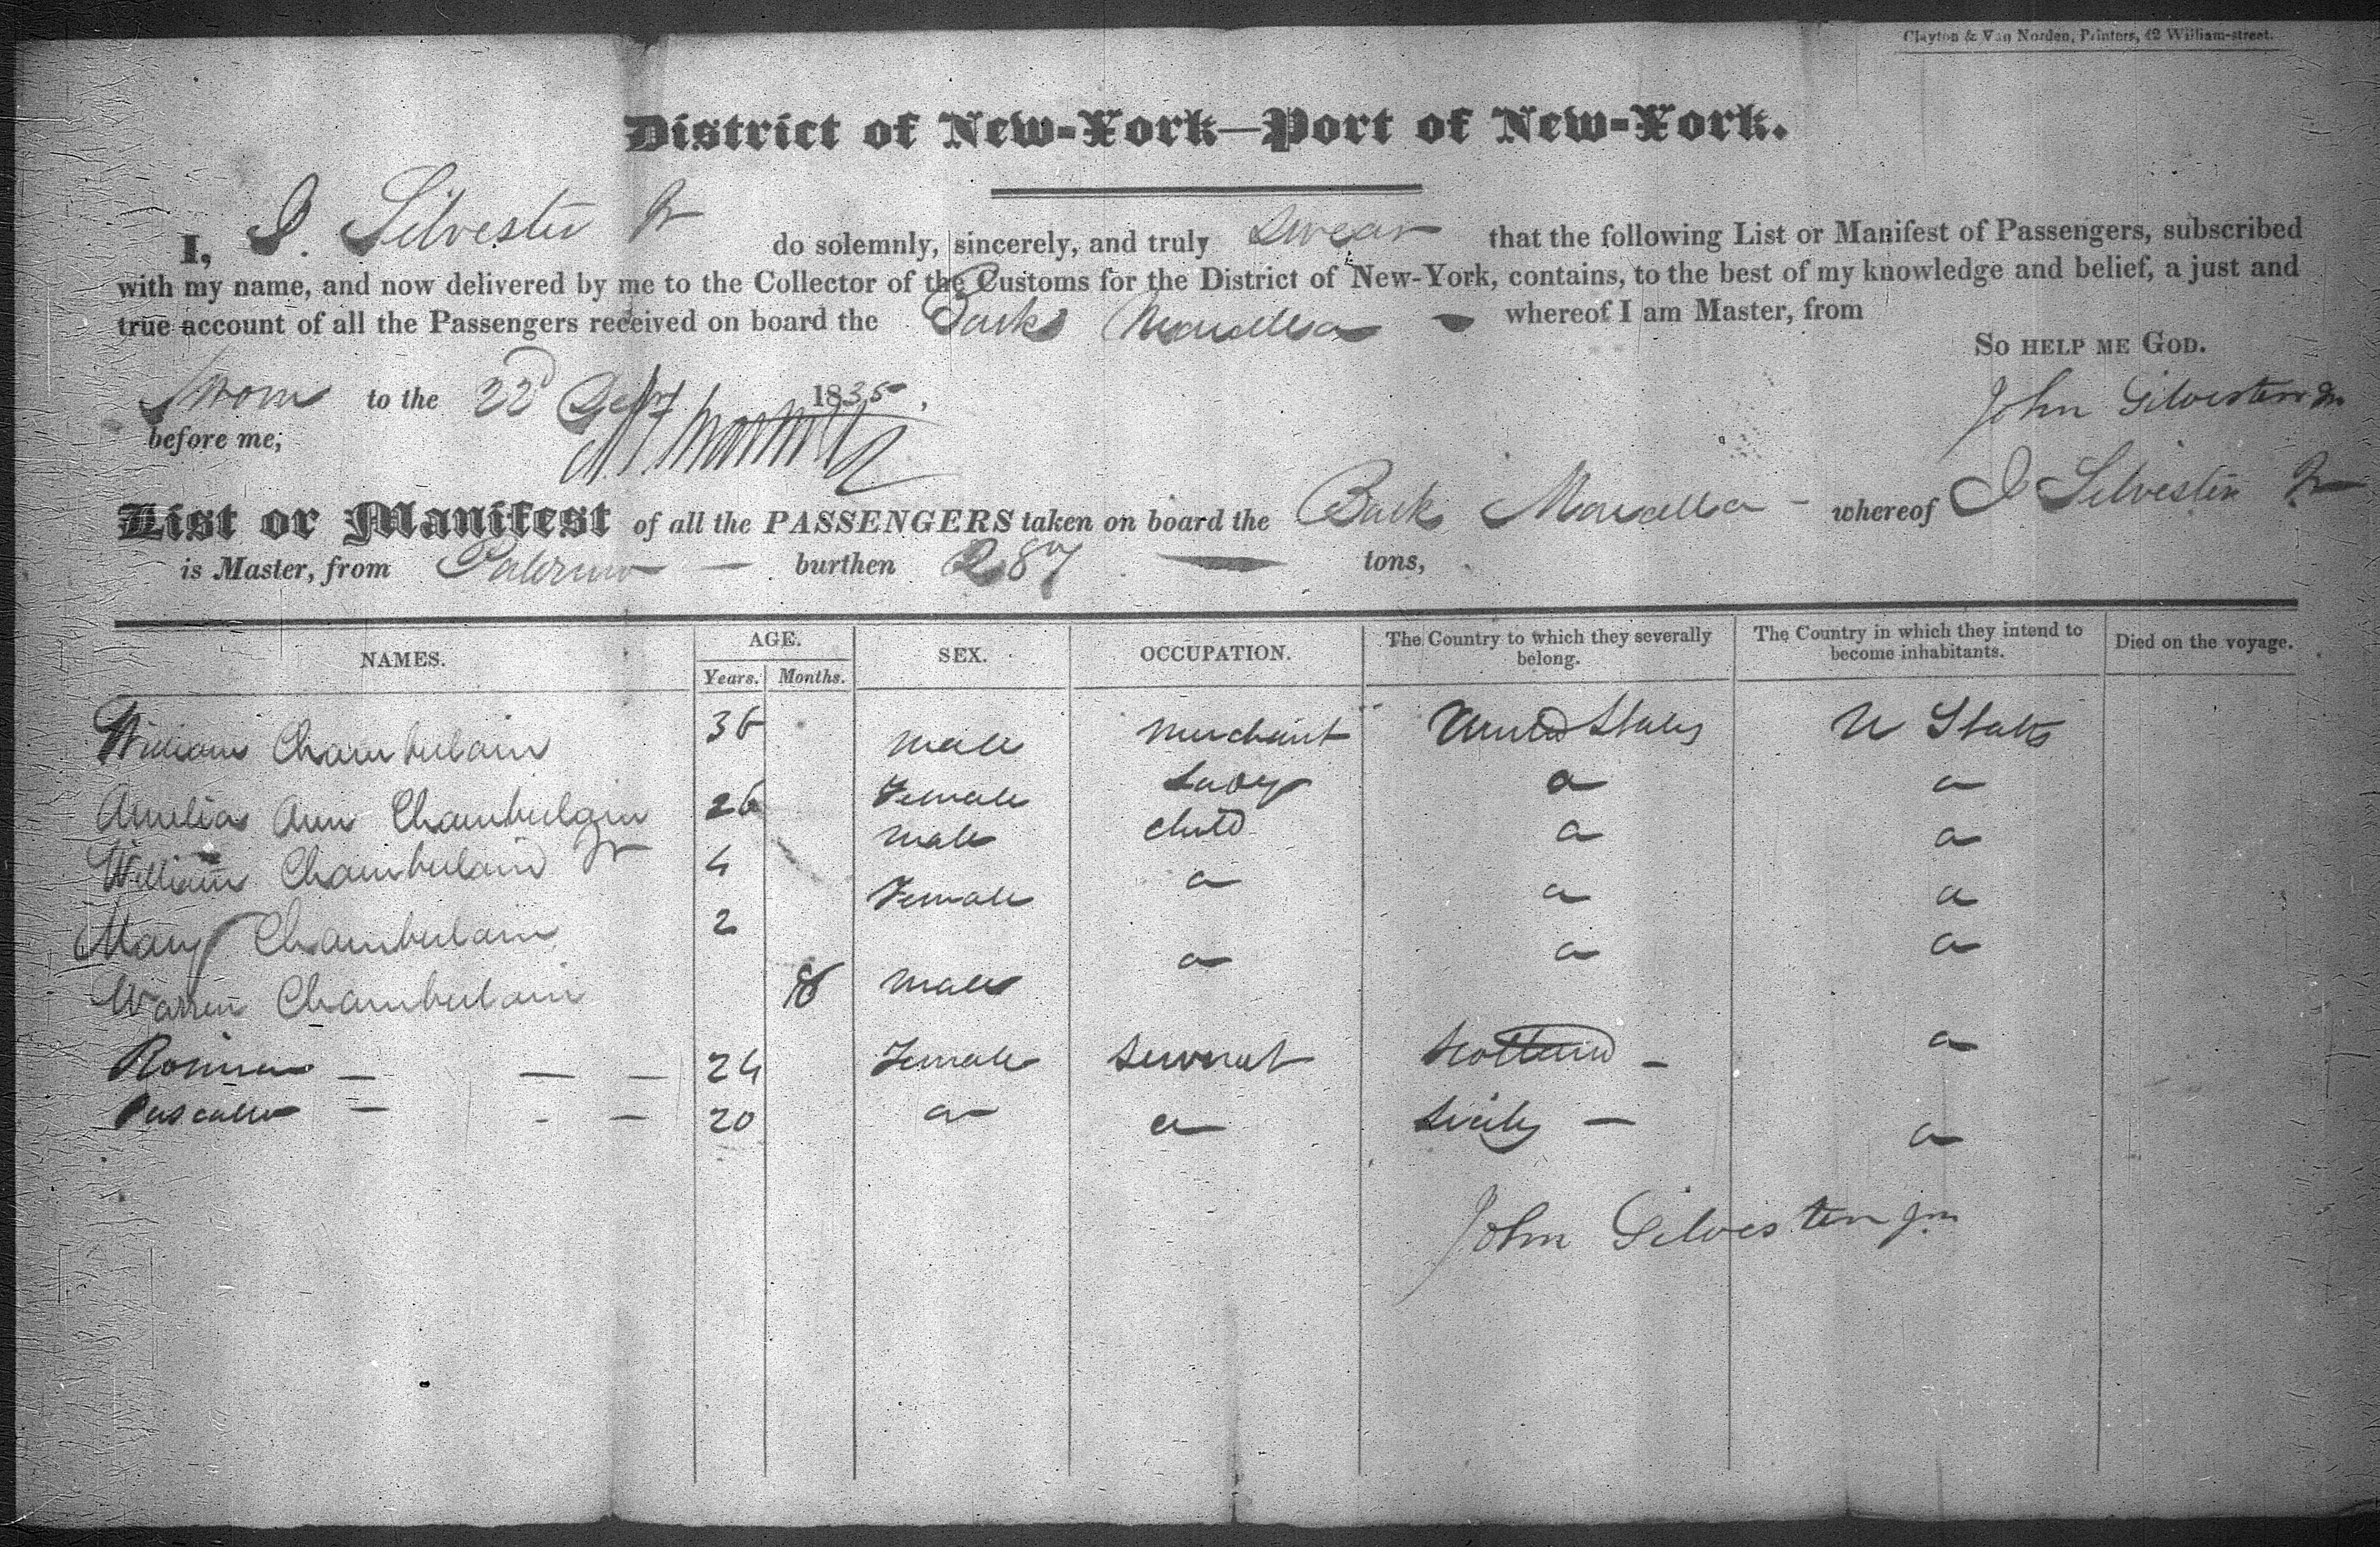 Clayton & Van Norden, Printers, 42 William-street.
District of New-York—Port of New-York.
I, J. Silvester Jr do solemnly, sincerely, and truly swear that the following List or Manifest of Passengers, subscribed
with my name, and now delivered by me to the Collector of the Customs for the District of New-York, contains, to the best of my knowledge and belief, a just and
true account of all the Passengers received on board the Bark Marcella whereof I am Master, from
So help me God.
Sworn to the 22d 1835
John Silvester Jr
before me;
List or Manifest of all the PASSENGERS taken on board the Bark Marcella - whereof J Silvester Jr
is Master, from Palermo — burthen 287 — tons,
NAMES. AGE. SEX. OCCUPATION. The Country to which they severally belong. The Country in which they intend to become inhabitants. Died on the voyage.
Years. Months.
William Chamberlain 36 male Merchant United States U States
Amelia Ann Chamberlain 26 Female Lady a a
William Chamberlain Jr 4 male child a a
Mary Chamberlain 2 Female a a a
Warren Chamberlain 8 male a a a
Rosina — — — 24 Female Servant Scotland — a
— - — 20 a a Sicily — a
John Silvester Jr